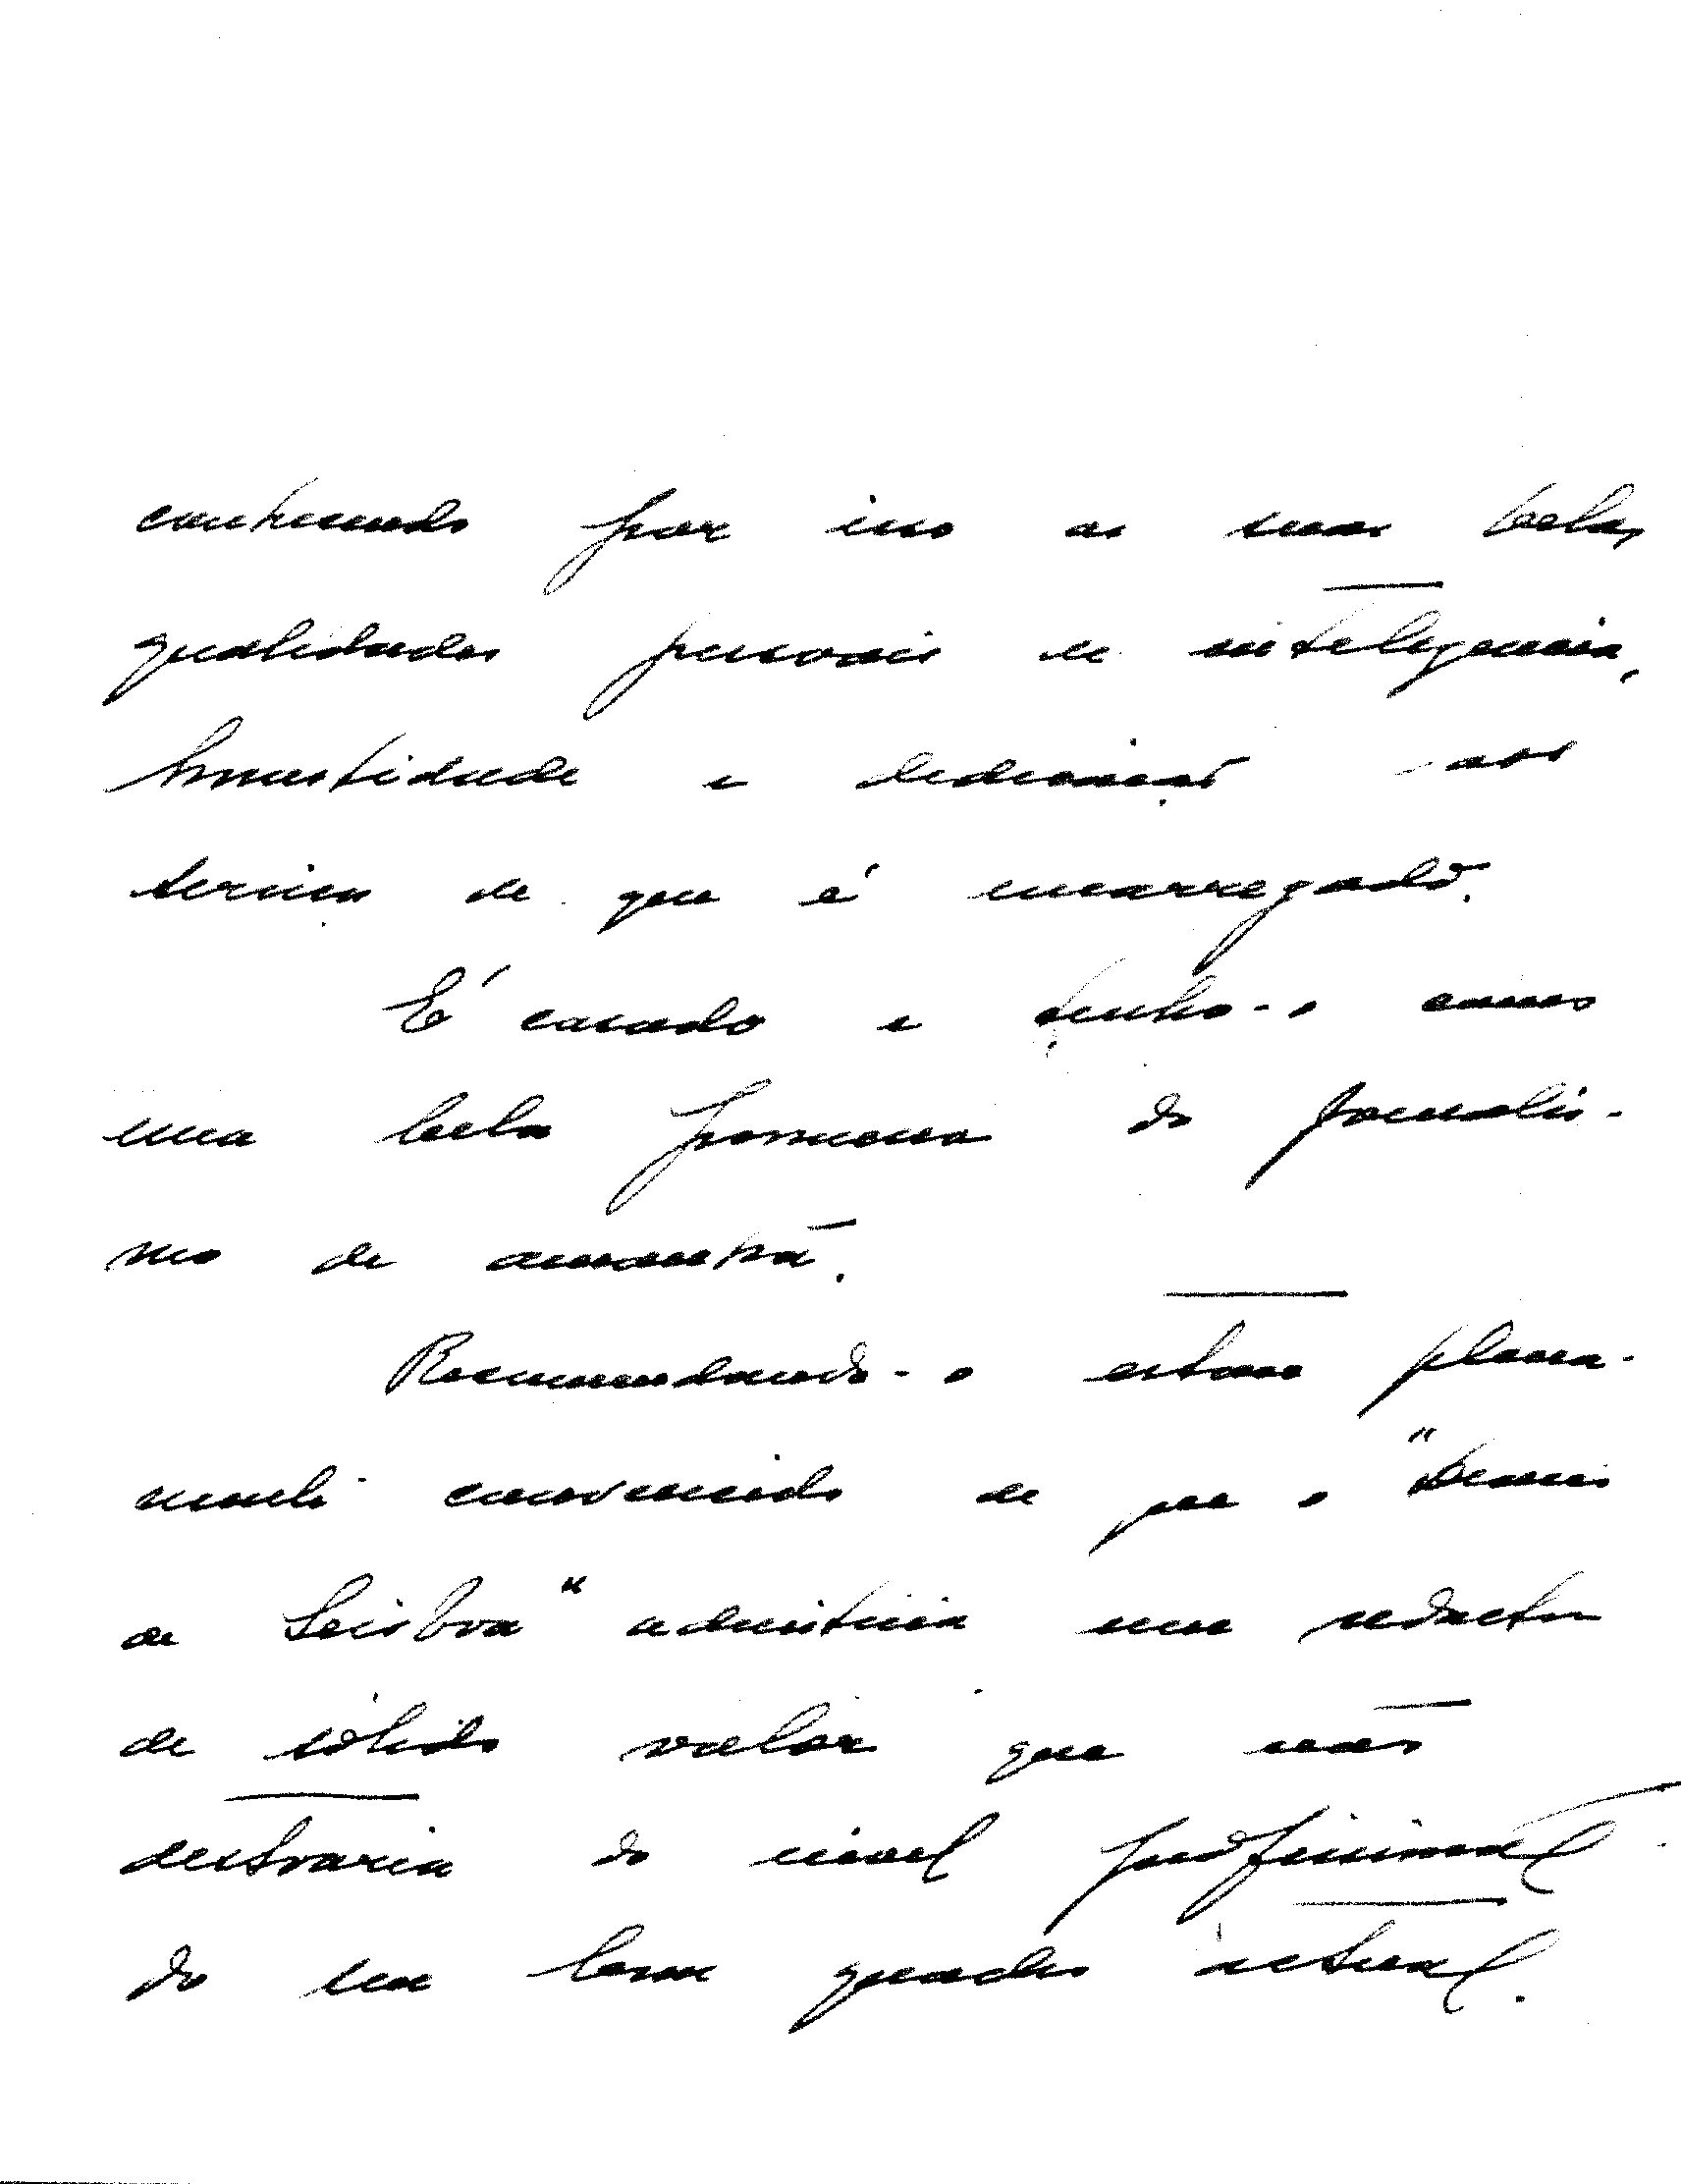 conhecendo por isso as suas belas
qualidades pessoais de inteligencia,
honestidade e dedicação aos
serviços de que é encarregado.
É casado e tenho-o como
uma bela promessa do jornalis-
mo de amanhã.
Recomendando-o estou plena-
mente convencido de que o "Diario
de Lisboa" admitiria um redactor
de sólido valor que não
destoaria do nivel profissional
do seu bom quadro actual.